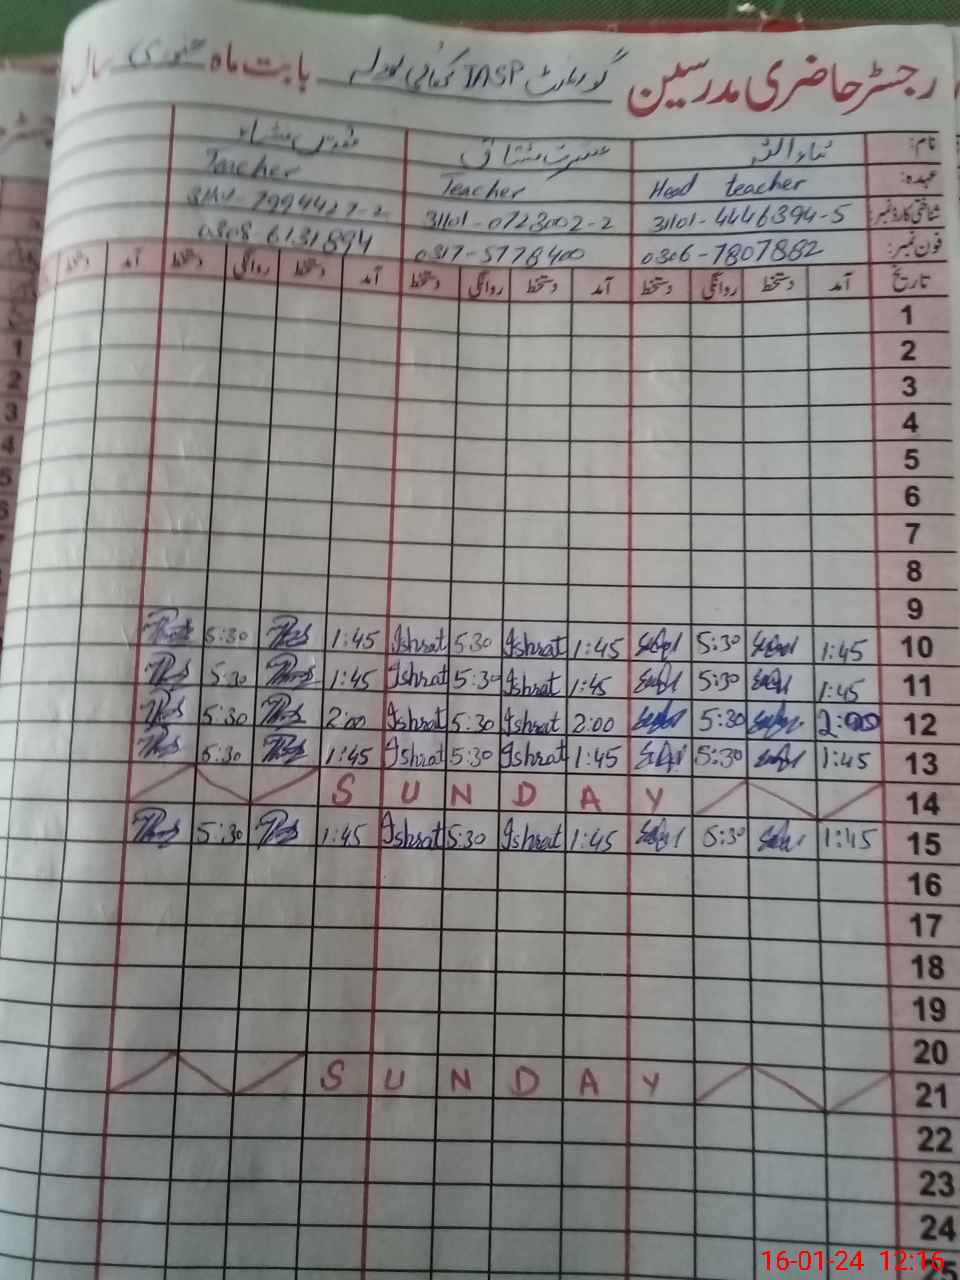 رجسٹر حاضری مدرسین گورنمنٹ TASP بابت ماہ جنوری سال
نام: ثناء اللہ عشرت مشتاق
عہدہ: Head teacher Teacher Teacher
شناختی کارڈ نمبر: 31101-4446394-5 31101-0723002-2
فون نمبر: 0306-7807882 0317-5778400 0308 6131894
تاریخ آمد دستخط روانگی دستخط آمد دستخط روانگی دستخط آمد دستخط روانگی دستخط آمد دستخط
1
2
3
4
5
6
7
8
9
5:30 1:45 Ishrat 5:30 Ishrat 1:45 5:30 1:45 10
5:30 1:45 Ishrat 5:30 Ishrat 1:45 5:30 1:45 11
5:30 2:00 Ishrat 5:30 Ishrat 2:00 5:30 2:00 12
5:30 1:45 Ishrat 5:30 Ishrat 1:45 5:30 1:45 13
SUNDAY 14
5:30 1:45 Ishrat 5:30 Ishrat 1:45 5:30 1:45 15
16
17
18
19
20
SUNDAY 21
22
23
24
25
16-01-24 12:16